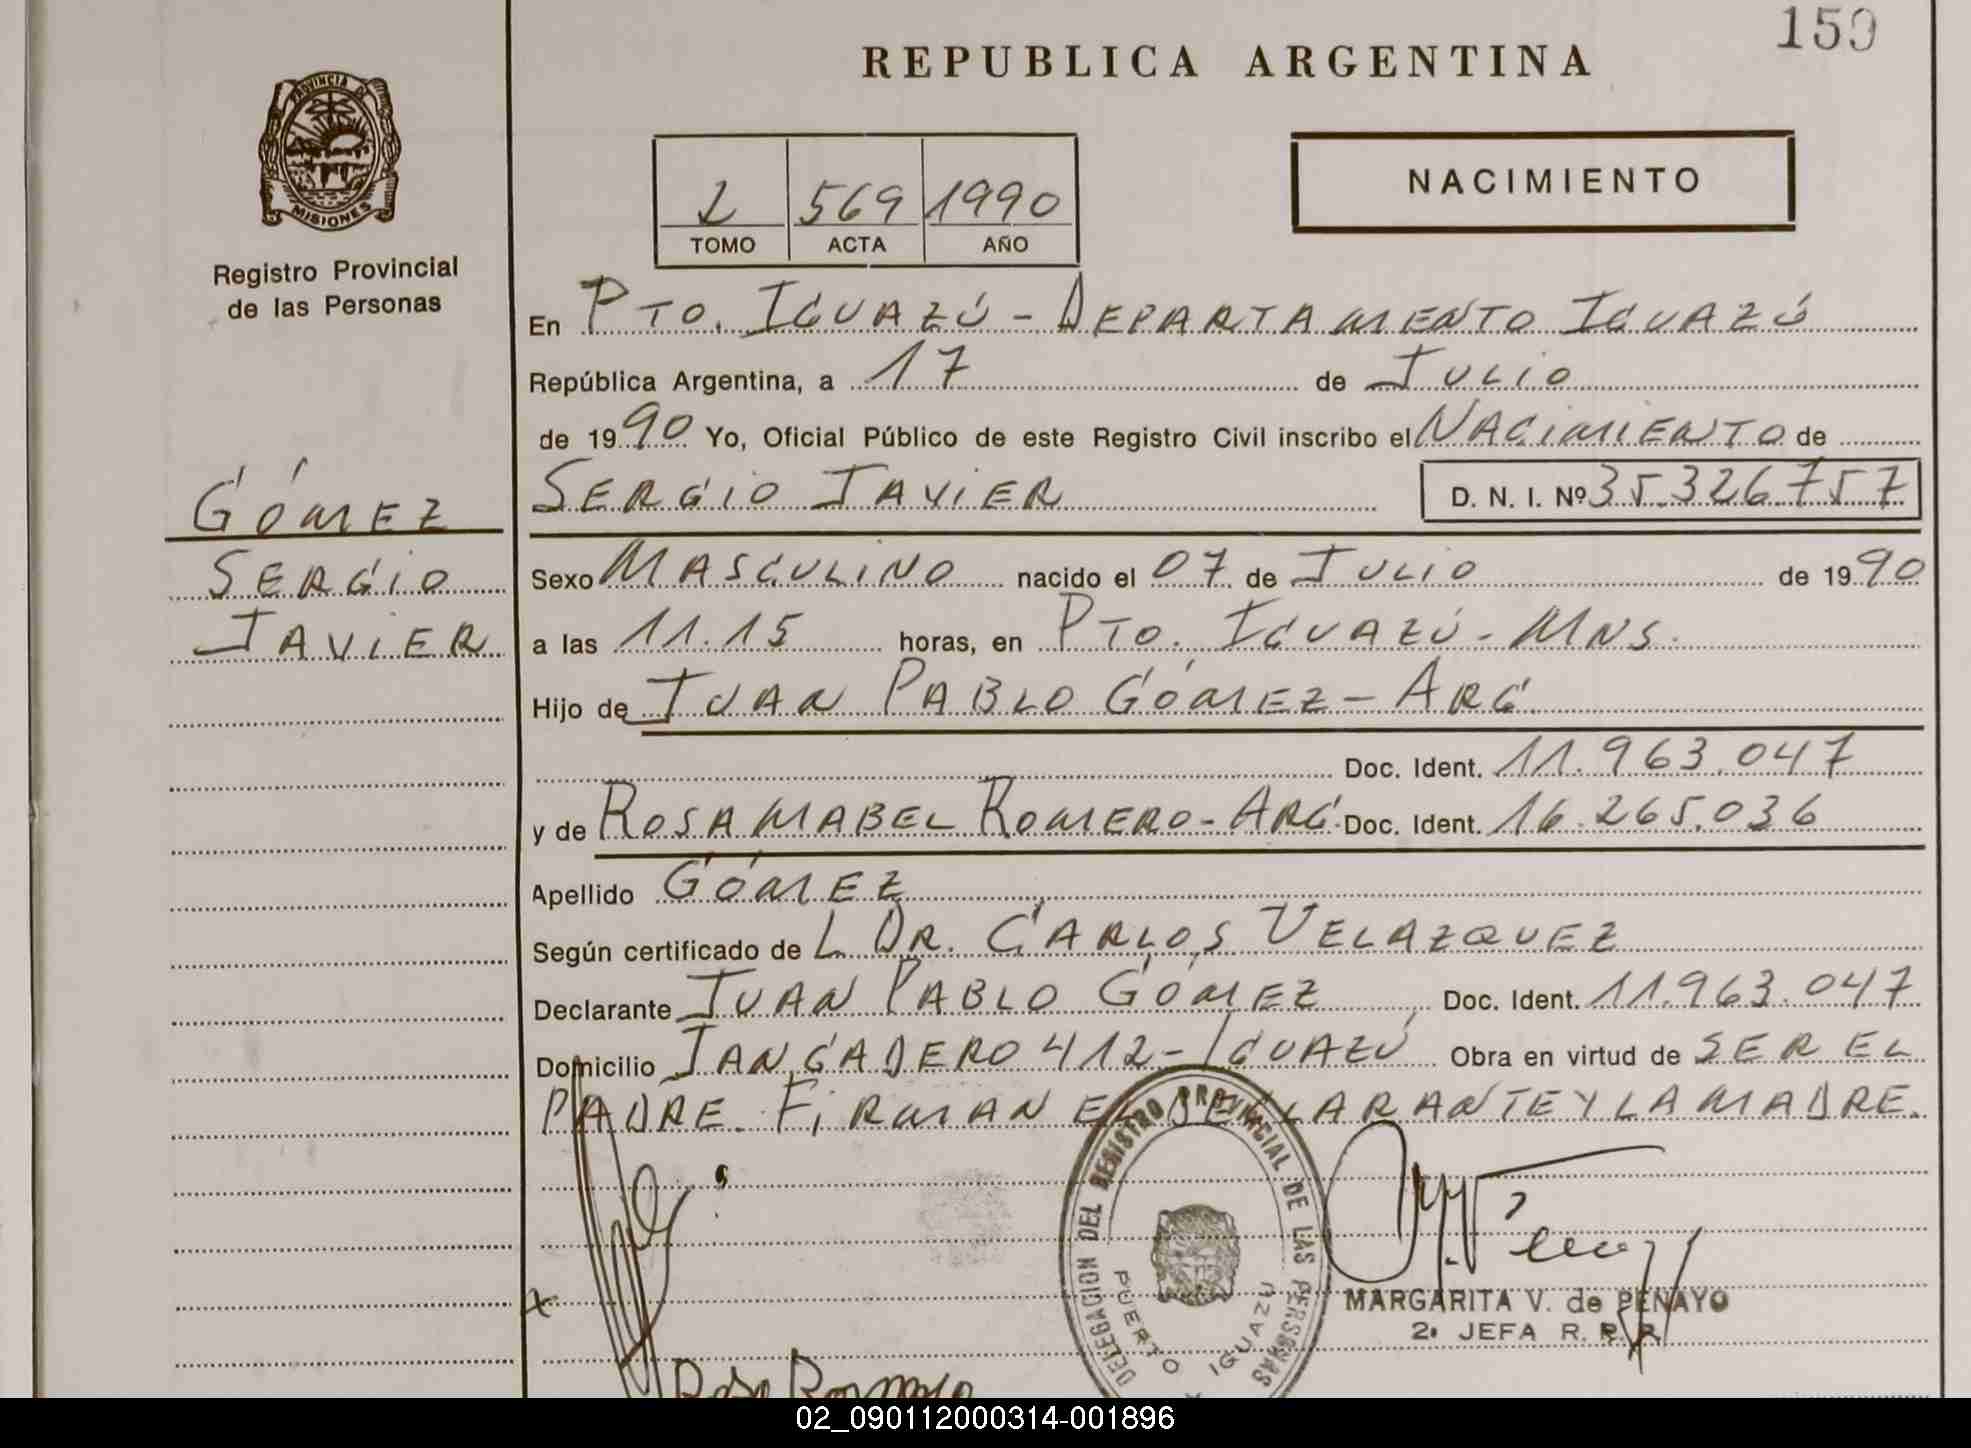 159
REPUBLICA ARGENTINA
PROVINCIA DE
MISIONES
Registro Provincial
de las Personas
2 569 1990
TOMO ACTA AÑO
NACIMIENTO
En PTO. IGUAZÚ - DEPARTAMENTO IGUAZÚ
República Argentina, a 17 de JULIO
de 1990 Yo, Oficial Público de este Registro Civil inscribo el NACIMIENTO de
GÓMEZ
SERGIO JAVIER D. N. I. Nº 35.326.757
SERGIO
JAVIER
Sexo MASCULINO nacido el 07 de JULIO de 1990
a las 11.15 horas, en PTO. IGUAZÚ - MNS.
Hijo de JUAN PABLO GÓMEZ - ARG.
Doc. Ident. 11.963.047
y de ROSA MABEL ROMERO - ARG. Doc. Ident. 16.265.036
Apellido GÓMEZ
Según certificado de L DR. CARLOS VELAZQUEZ
Declarante JUAN PABLO GÓMEZ Doc. Ident. 11.963.047
Domicilio JANGADERO 412 - IGUAZÚ Obra en virtud de SER EL
PADRE. FIRMAN EL DECLARANTE Y LA MADRE.
DELEGACION DEL REGISTRO PROVINCIAL DE LAS PERSONAS
PUERTO IGUAZU
MARGARITA V. de PENAYO
2ª JEFA R. R. P.
Rosa Romero
02_090112000314-001896